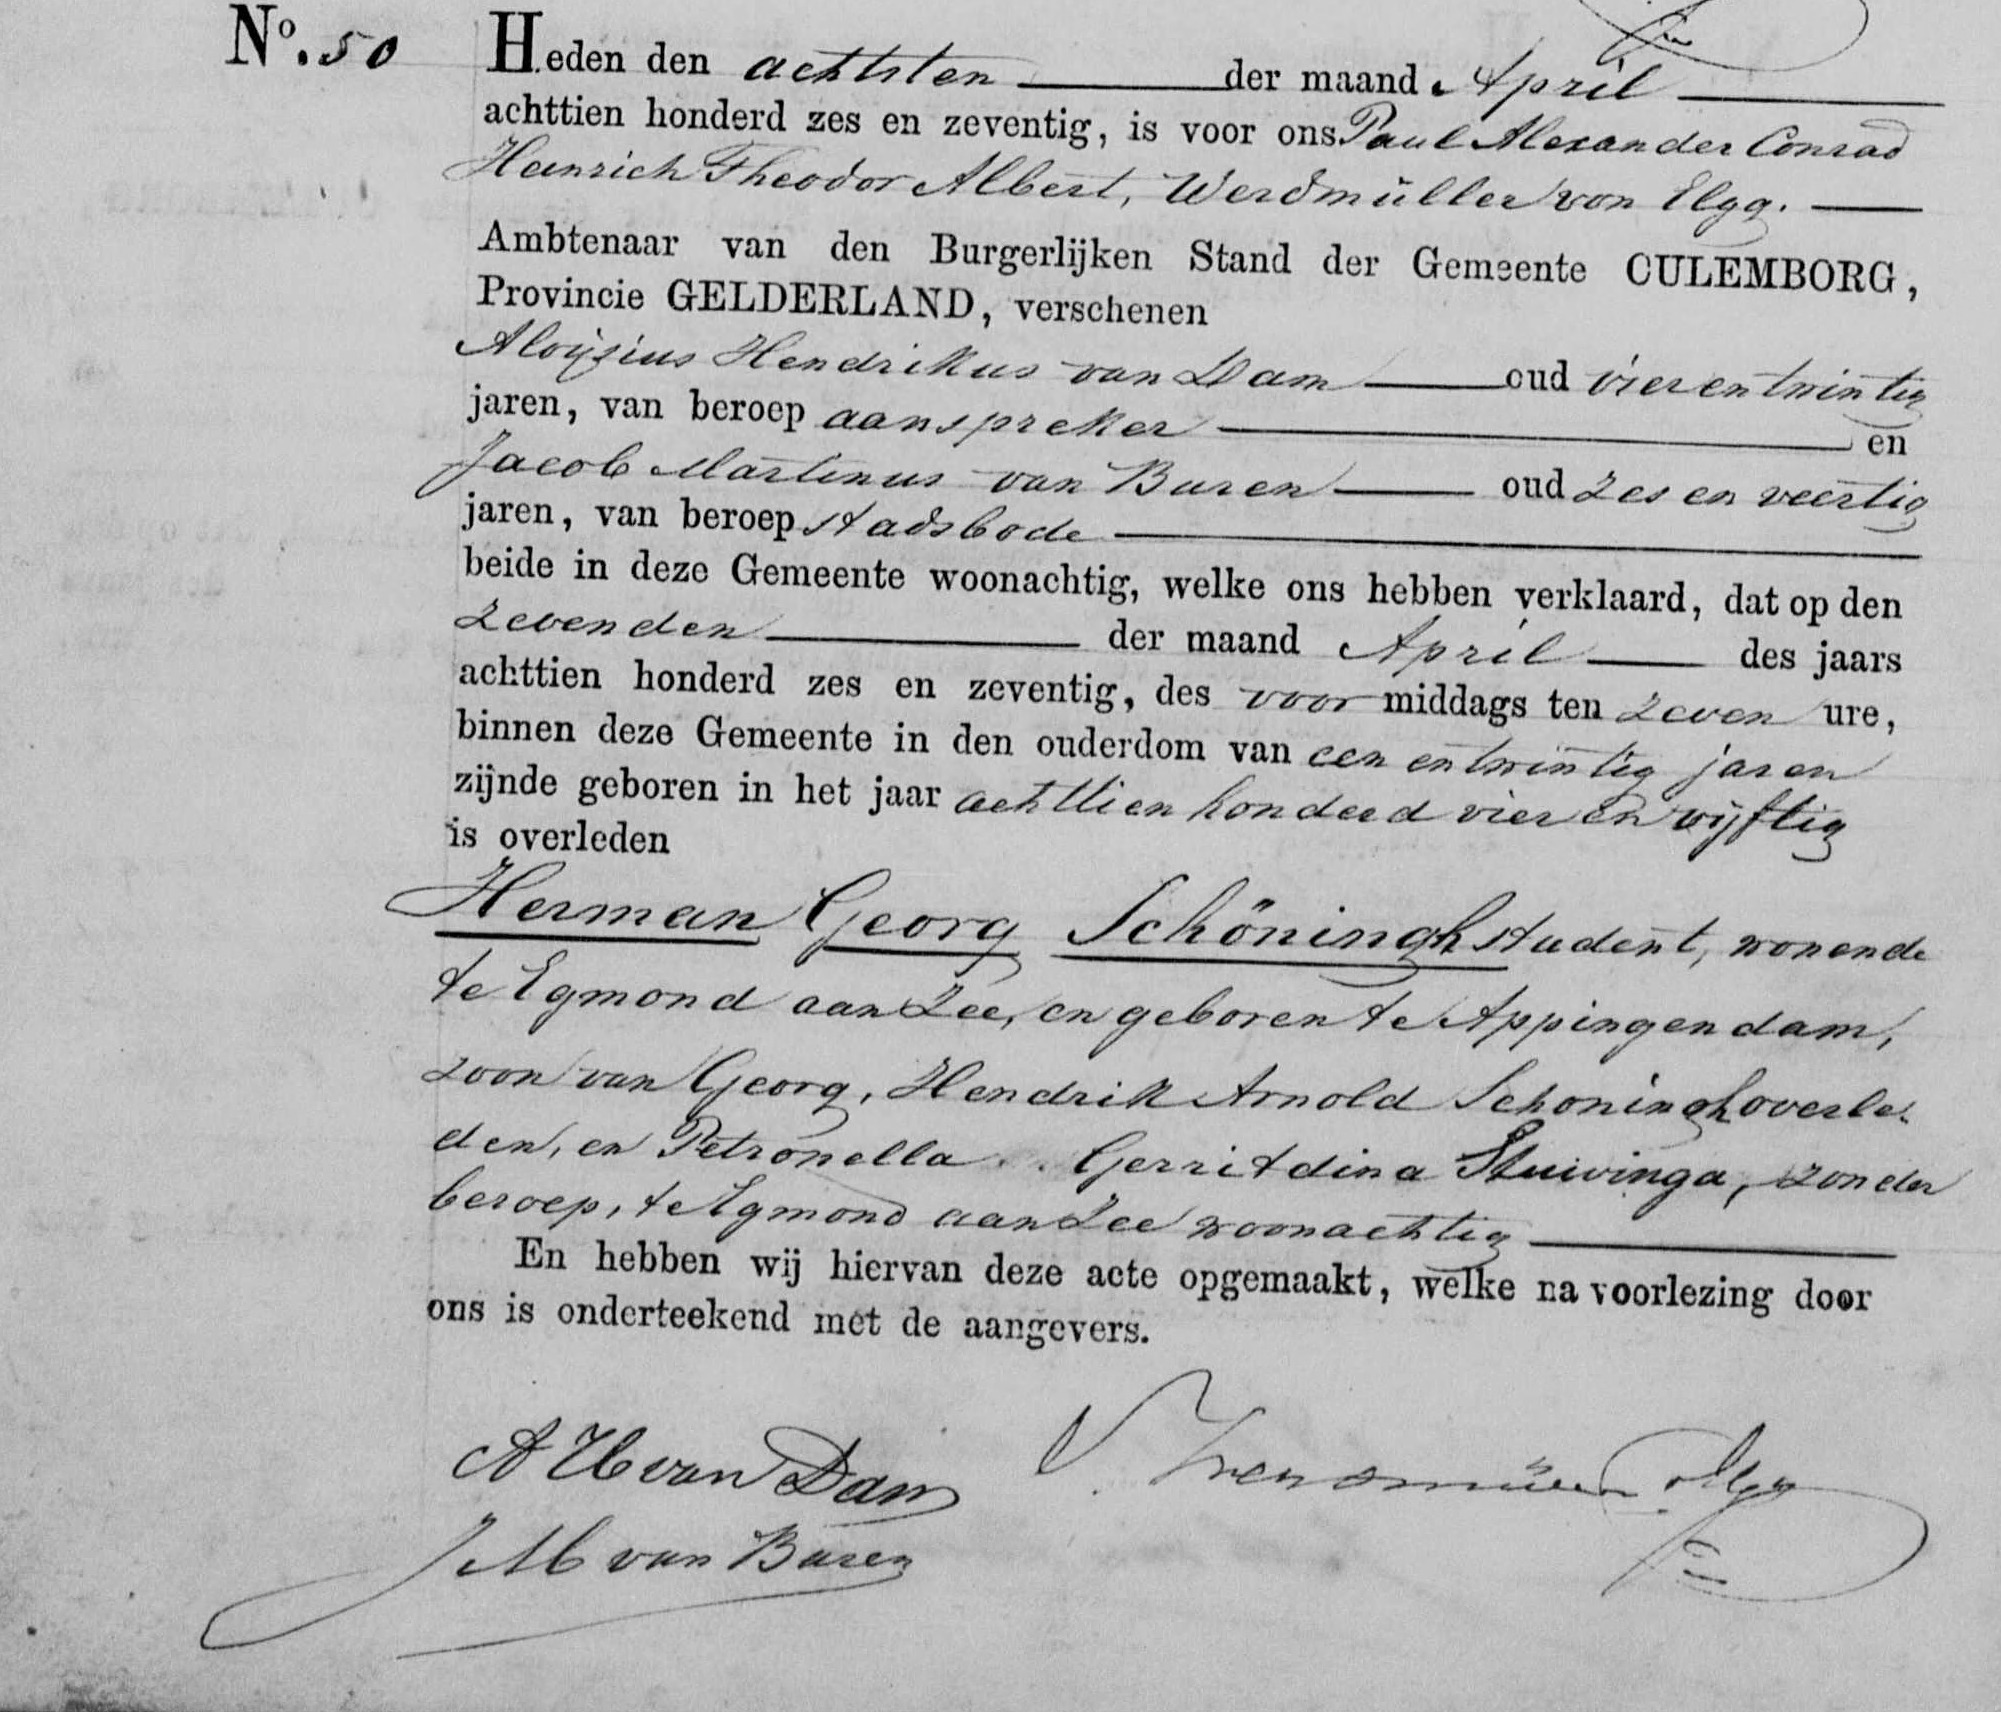 No. 50 Heden den achtsten der maand April
achttien honderd zes en zeventig, is voor ons Paul Alexander Conrad
Heinrich Theodor Albert, Werdmüller von Elgg.
Ambtenaar van den Burgerlijken Stand der Gemeente CULEMBORG,
Provincie GELDERLAND, verschenen
Aloijsius Hendrikus van Dam oud vier en twintig
jaren, van beroep aanspreker en
Jacob Martinus van Buren oud zes en veertig
jaren, van beroep stadsbode
beide in deze Gemeente woonachtig, welke ons hebben verklaard, dat op den
zevenden der maand April des jaars
achttien honderd zes en zeventig, des voor middags ten zeven ure,
binnen deze Gemeente in den ouderdom van een en twintig jaren
zijnde geboren in het jaar achttien honderd vier en vijftig
is overleden
Herman Georg Schöningh student, wonende
te Egmond aan Zee, en geboren te Appingendam,
zoon van Georg, Hendrik Arnold Schoningh overle-
den, en Petronella Gerritdina Stuivinga, zonder
beroep, te Egmond aan Zee woonachtig
En hebben wij hiervan deze acte opgemaakt, welke na voorlezing door
ons is onderteekend met de aangevers.
A H van Dam
J M van Buren